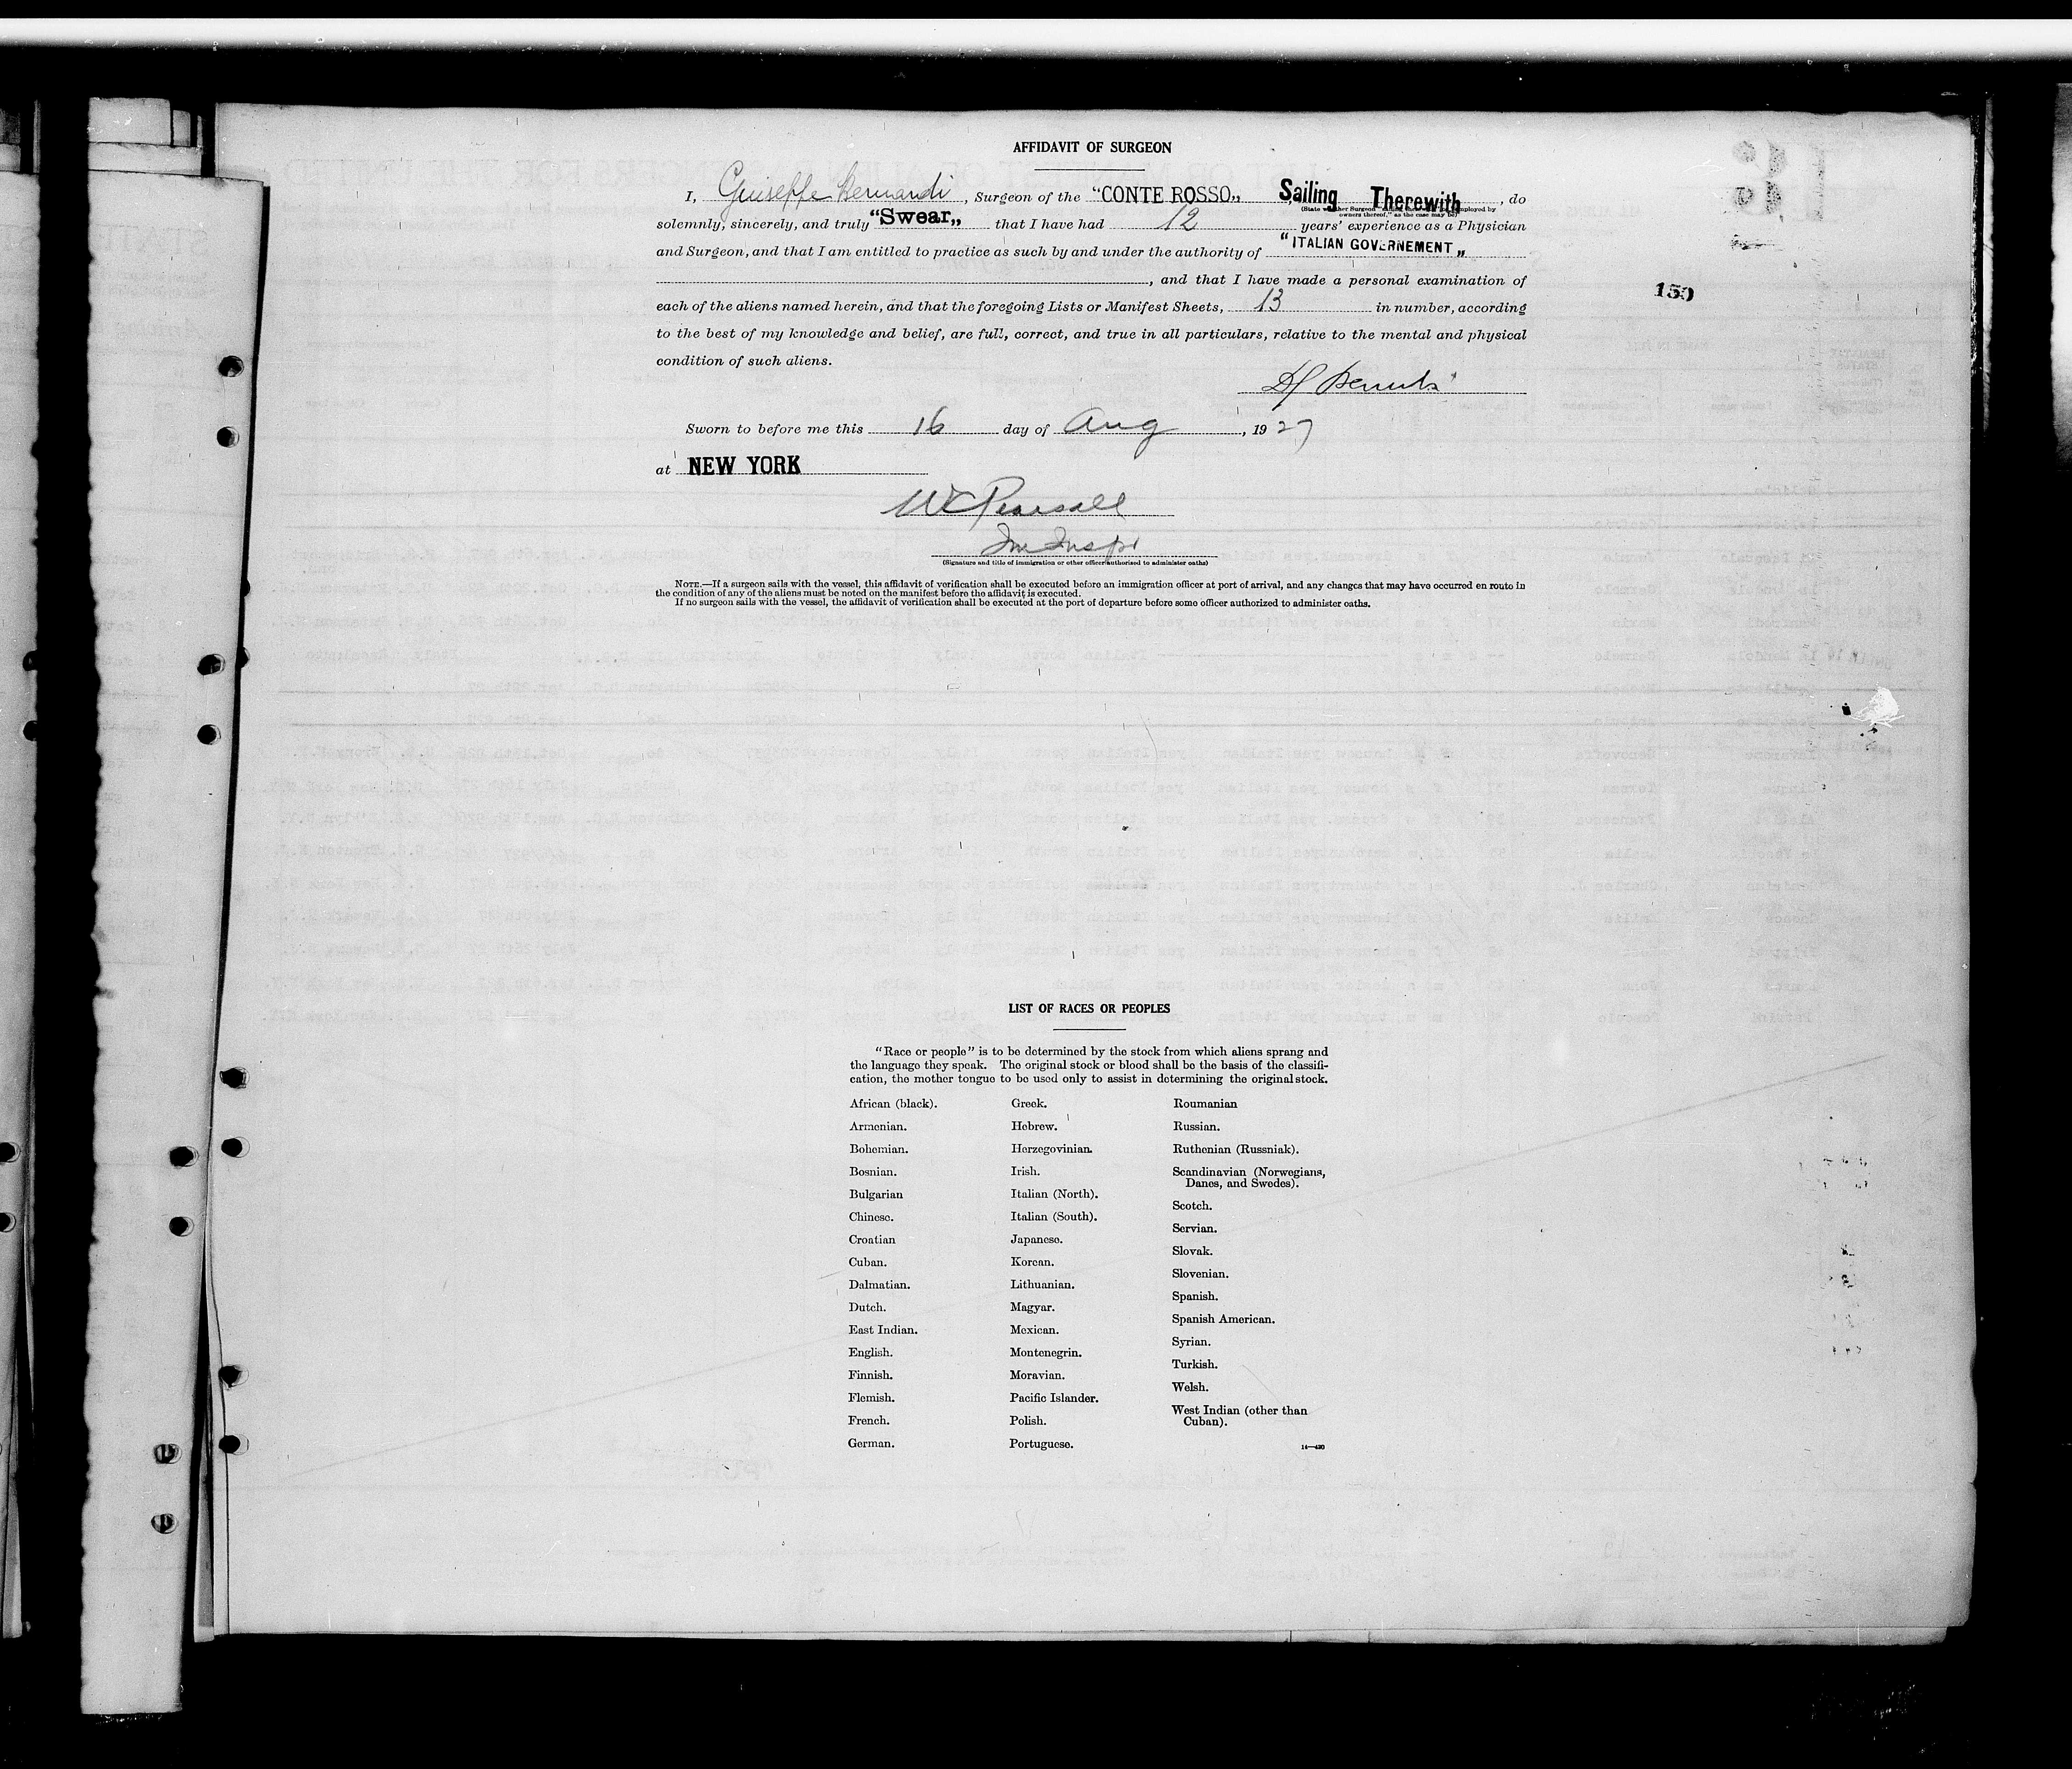 AFFIDAVIT OF SURGEON
I, Guiseppe Bernardi, Surgeon of the "CONTE ROSSO„ Sailing Therewith, do
(State whether Surgeon employed by
owners thereof," as the case may be)
solemnly, sincerely, and truly "Swear„ that I have had 12 years' experience as a Physician
and Surgeon, and that I am entitled to practice as such by and under the authority of "ITALIAN GOVERNEMENT„
, and that I have made a personal examination of
150
each of the aliens named herein, and that the foregoing Lists or Manifest Sheets, 13 in number, according
to the best of my knowledge and belief, are full, correct, and true in all particulars, relative to the mental and physical
condition of such aliens.
Sworn to before me this 16 day of Aug, 1927
at NEW YORK
WC Pearsall
Im Inspr
(Signature and title of immigration or other officer authorized to administer oaths)
NOTE.—If a surgeon sails with the vessel, this affidavit of verification shall be executed before an immigration officer at port of arrival, and any changes that may have occurred en route in
the condition of any of the aliens must be noted on the manifest before the affidavit is executed.
If no surgeon sails with the vessel, the affidavit of verification shall be executed at the port of departure before some officer authorized to administer oaths.
LIST OF RACES OR PEOPLES
"Race or people" is to be determined by the stock from which aliens sprang and
the language they speak. The original stock or blood shall be the basis of the classifi-
cation, the mother tongue to be used only to assist in determining the original stock.
African (black).
Armenian.
Bohemian.
Bosnian.
Bulgarian
Chinese.
Croatian
Cuban.
Dalmatian.
Dutch.
East Indian.
English.
Finnish.
Flemish.
French.
German.
Greek.
Hebrew.
Herzegovinian.
Irish.
Italian (North).
Italian (South).
Japanese.
Korean.
Lithuanian.
Magyar.
Mexican.
Montenegrin.
Moravian.
Pacific Islander.
Polish.
Portuguese.
Roumanian
Russian.
Ruthenian (Russniak).
Scandinavian (Norwegians,
Danes, and Swedes).
Scotch.
Servian.
Slovak.
Slovenian.
Spanish.
Spanish American.
Syrian.
Turkish.
Welsh.
West Indian (other than
Cuban).
14—430